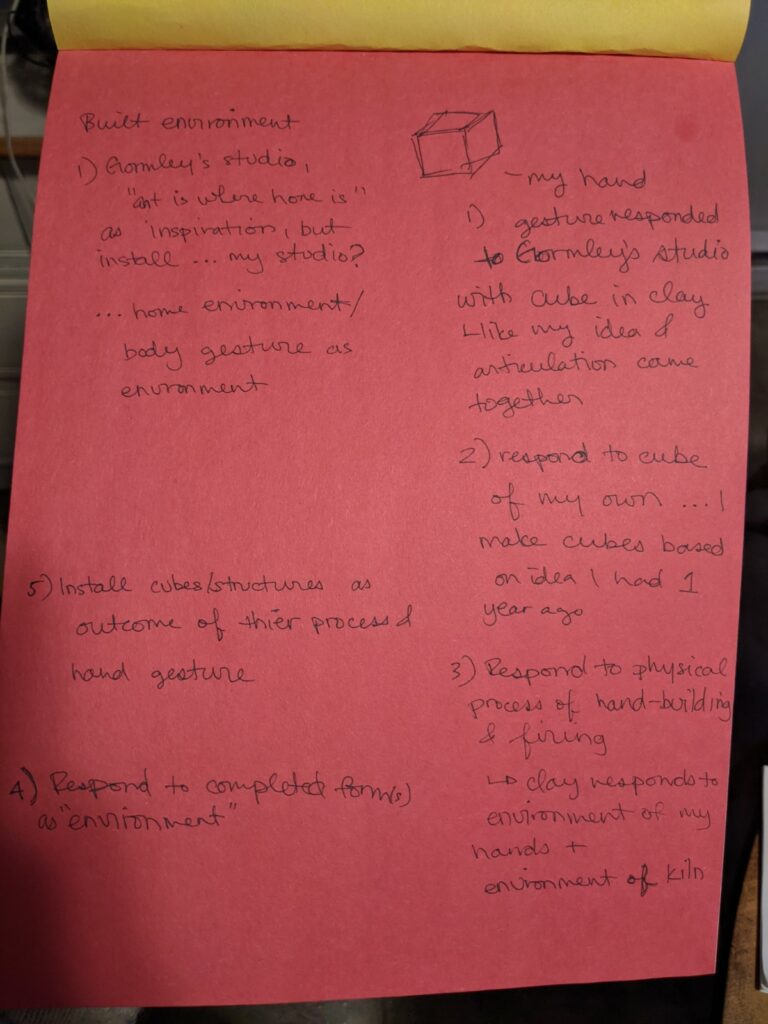 Built environment
1) Gormley's studio,
"art is where home is"
as inspiration, but
install ... my studio?
... home environment/
body gesture as
environment
- my hand
1) gesture responded
to Gormley's studio
with cube in clay
like my idea &
articulation came
together
2) respond to cube
of my own ... I
make cubes based
on idea I had 1
year ago
3) Respond to physical
process of hand-building
& firing
↳ clay responds to
environment of my
hands +
environment of kiln
4) Respond to completed form(s)
as "environment"
5) Install cubes/structures as
outcome of thier process &
hand gesture